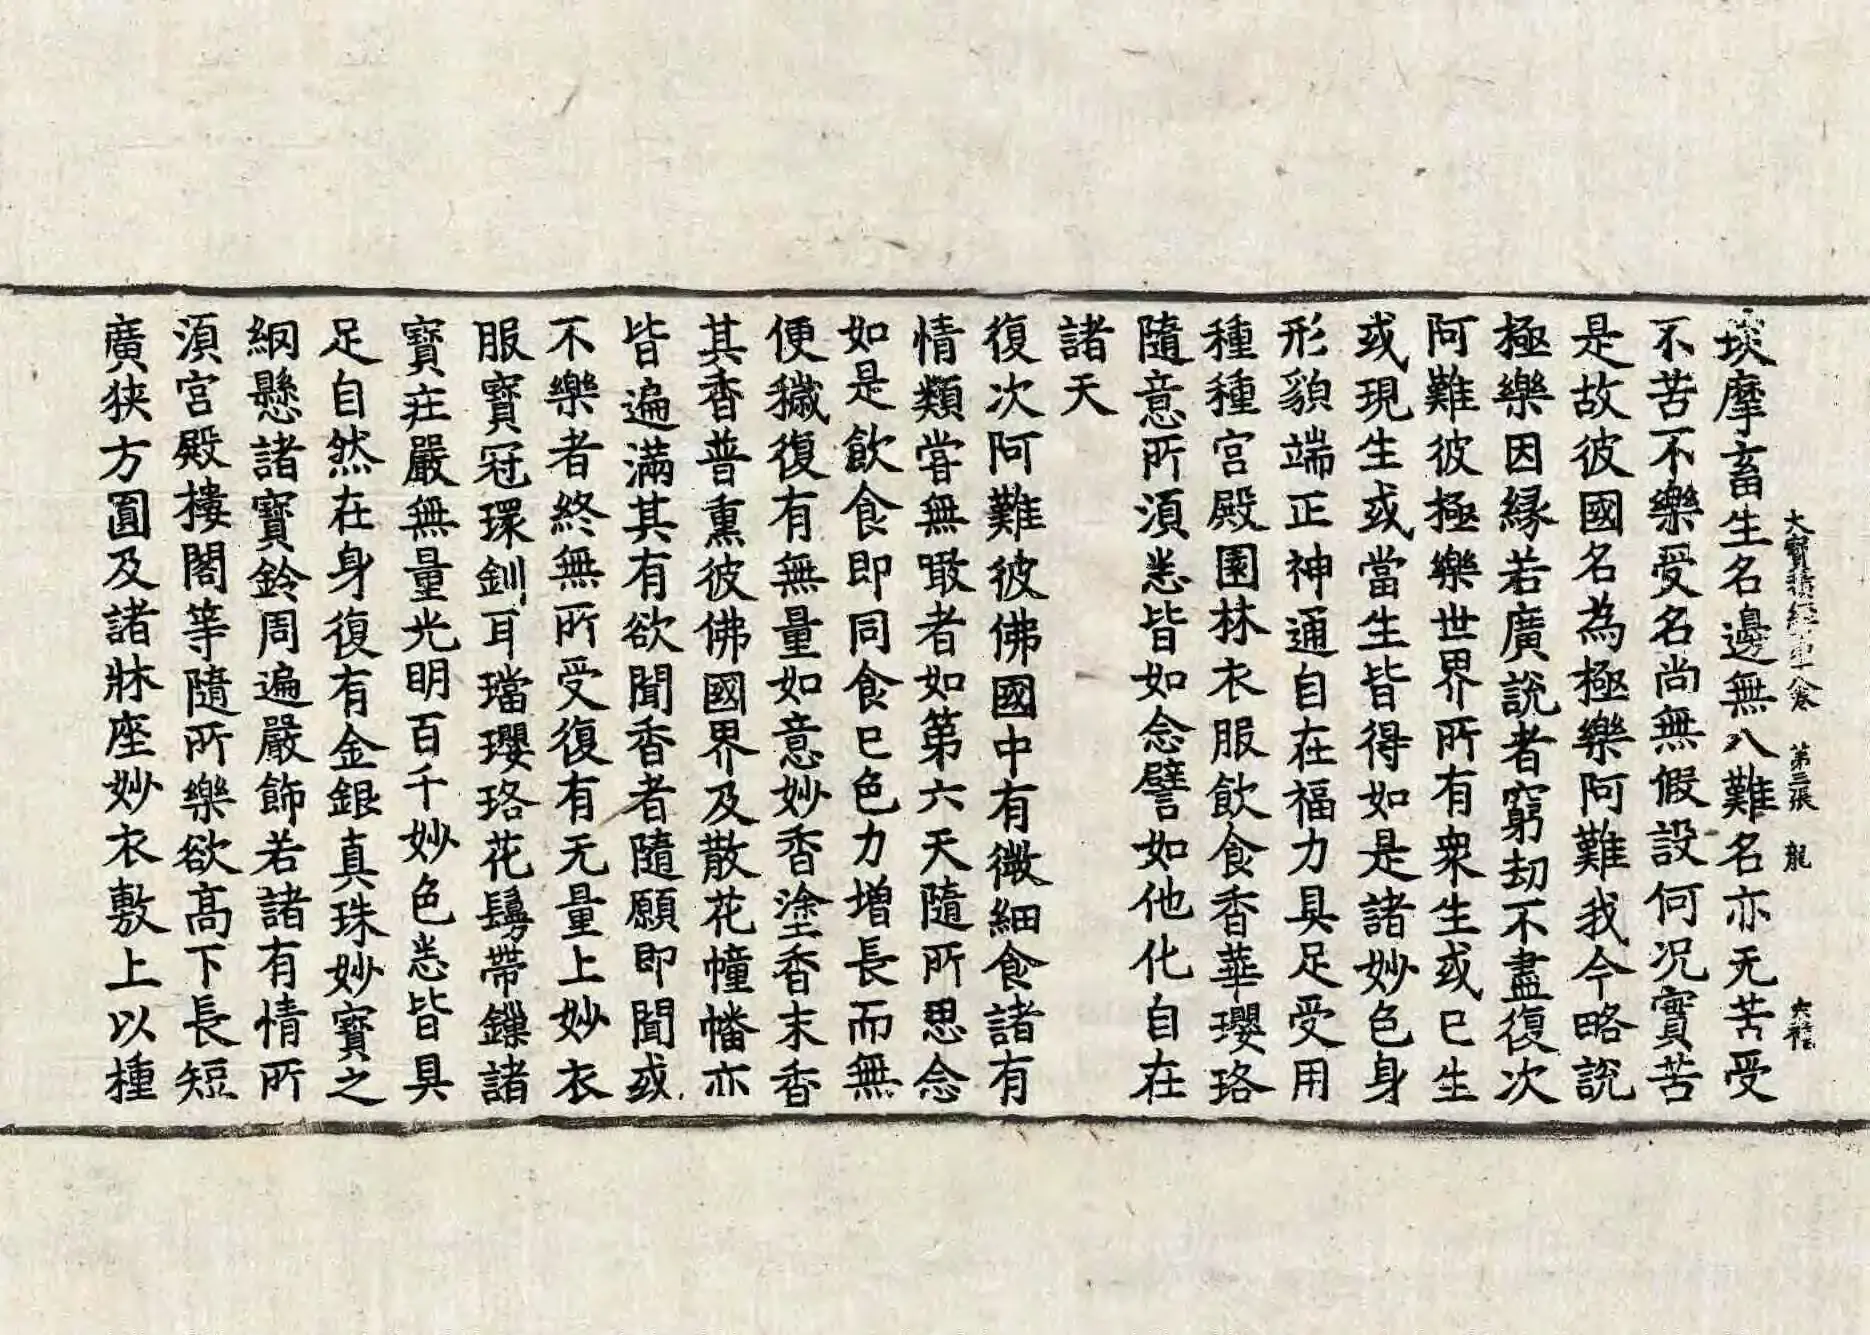 大寶積經第十八卷 第三張 龍
琰摩畜生名邊無八難名亦无苦受
不苦不樂受名尚無假設何况實苦
是故彼國名為極樂阿難我今略說
極樂因縁若廣說者窮劫不盡復次
阿難彼極樂世界所有衆生或已生
或現生或當生皆得如是諸妙色身
形貌端正神通自在福力具足受用
種種宮殿園林衣服飲食香華瓔珞
隨意所湏悉皆如念譬如他化自在
諸天
復次阿難彼佛國中有微細食諸有
情類甞無噉者如第六天隨所思念
如是飲食即同食已色力增長而無
便穢復有無量如意妙香塗香末香
其香普熏彼佛國界及散花幢幡亦
皆遍滿其有欲聞香者隨願即聞或
不樂者終無所受復有无量上妙衣
服寶冠環釧耳璫瓔珞花鬘帶鏁諸
寶莊嚴無量光明百千妙色悉皆具
足自然在身復有金銀真珠妙寶之
網懸諸寶鈴周遍嚴飾若諸有情所
湏宮殿樓閣等隨所樂欲高下長短
廣狹方圓及諸牀座妙衣敷上以種